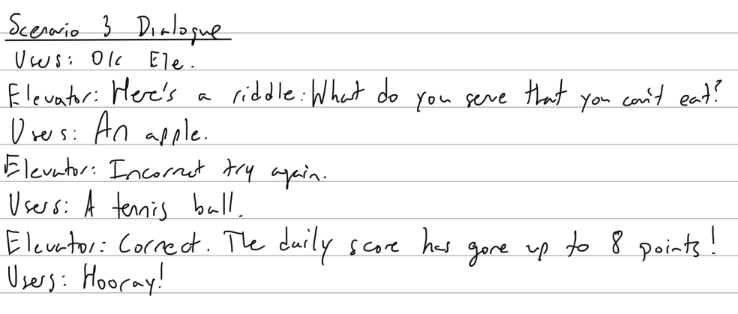 Scenario 3 Dialogue
Users: Ok Ele.
Elevator: Here's a riddle: What do you serve that you can't eat?
Users: An apple.
Elevator: Incorrect try again.
Users: A tennis ball.
Elevator: Correct. The daily score has gone up to 8 points!
Users: Hooray!